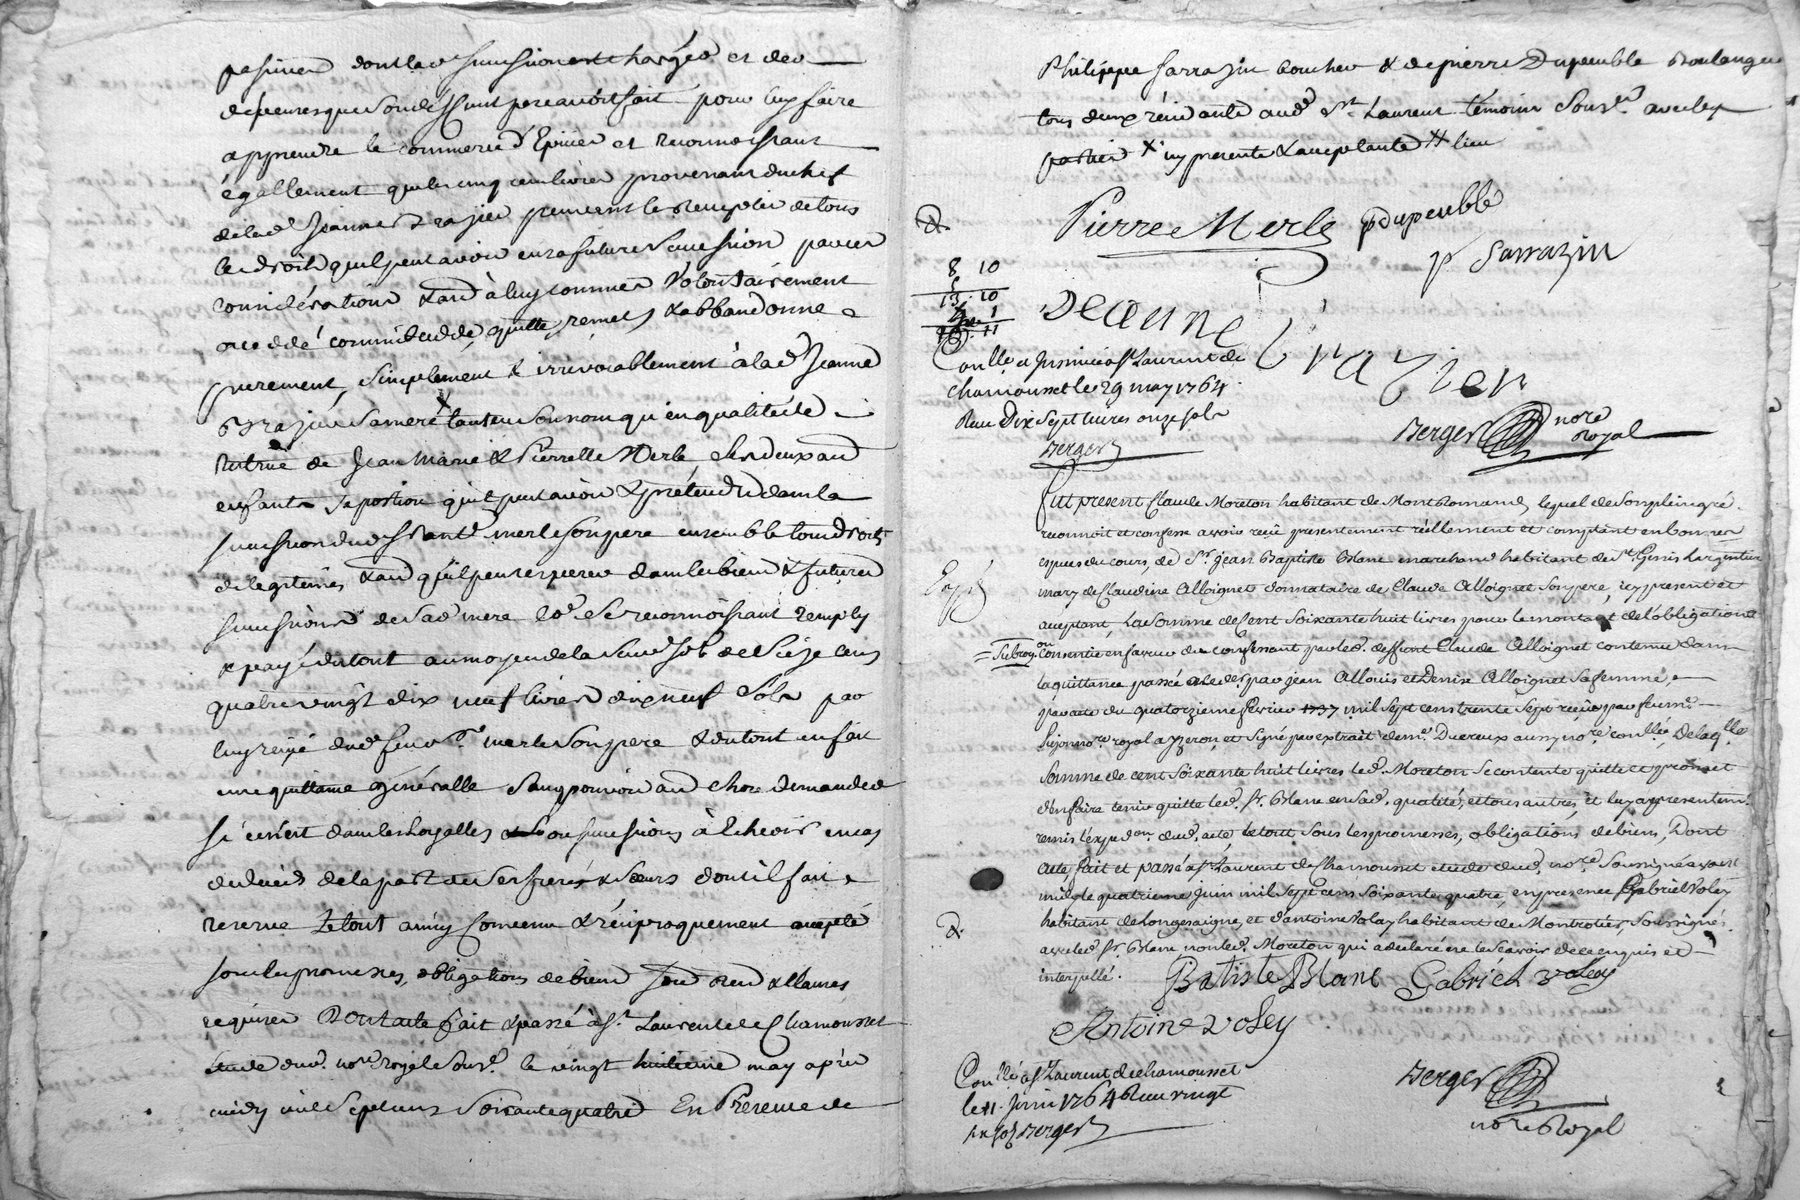 passives dont lad. succession est chargée et des
depenses que son deffunt pere avoit fait pour luy faire
apprendre le commerce d'Epicier et reconnoissant
égallement que les cinq cens livres provenant du chef
de lad. Jeanne Grazier peuvent le remplir de tous
les droits quil peut avoir en sa future succession par ces
considérations & and à luy sommes volontairement
a cedé comme il cedde, quitte, remet & abbandonne
purement, simplement & irrévocablement à lad. Jeanne
Grazier sa mere X tant en son nom qu'en qualité de
tutrice de Jean Marie & Pierrette Merle ses deux
enfants sa portion qu'il peut avoir & prétendre dans la
succession dud. Merle son pere ensemble tous droits
de legitimes & quil peut esperer dans les biens & futures
successions de sad. mere led. se reconnoissant remply
& payé du tout au moyen de la susd. somme de Seize cens
quatre vingt dix neuf livres dix neuf sols par
luy reçue dud. feu Sr. Merle son pere & du tout en fait
une quittance générale sans pouvoir autre chose demander
si ce n'est dans les loyalles successions à Echeoir en cas
de deceds de la part de ses freres & soeurs dont il fait
reserve Le tout ainsy convenu & réciproquement accepté
sous les promesses, obligations de biens & clauses
requises Dont acte fait & passé à St. Laurent de Chamousset
étude dud. nore. royal sousé. le vingt huitieme may après
midy mil sept cens soixante quatre En Presence de
Philippe Sarrazin boucher & de pierre Dupeuble Boulanger
tous deux résidants aud. St. Laurent témoins sousés. avec les
parties X icy presente & acceptante # lieu
Pierre Merle p Dupeuble
p Sarrazin
8 10
5
13. 10
4 1
17. 11
Jeanne Grazier
Conllé. et Insinué à St. Laurent de
chamousset le 29 may 1764.
Reçu Dix Sept livres onze sols
Berger
Berger nore
Royal
Fut present Claude Moreton habitant de Montromand lequel de son plein gré
reconnoit et confesse avoir reçu presentement réellement et comptant en bonnes
especes du cours, de Sr. Jean Baptiste Blanc marchand habitant de St. Genis Largentier
Expé.
mary de Claudine Alloignet donnataire de Claude Alloignet son pere, icy present et
acceptant, La somme de Cent Soixante huit livres pour le montant de l'obligation
= Subrogon
Consentie en faveur du confessant par led. deffunt Claude Alloignet contenue dans
la quittance passée aud. par Jean Allouis et Denise Alloignet sa femme,
par acte du quatorzieme février 1737 mil sept cens trente sept reçu par feu me.
nore. royal a yzeron, et signé par extrait de me. Ducreux aussy nore. conllé., De laqlle.
somme de cent soixante huit livres led. Moreton se contente quitte et promet
d'en faire tenir quitte led. Sr. Blanc en sad. qualité, et tous autres, et luy a presentemt.
remis l'expedon. dud. acte, Le tout sous les promesses, obligations de biens, Dont
acte fait et passé à St. Laurent de Chamousset etude dud. nore. soussigné avant
midy le quatrieme Juin mil sept cens soixante quatre, en presence de Gabriel Voley
habitant de Longessaigne et d'antoine Voley habitant de Montrotier, Soussignés
avec led. Sr. Blanc non led. Moreton qui a declaré ne le scavoir de ce enquis et
interpellé.
Batiste Blanc Gabriel Voley
Antoine Voley
Conllé. à St. Laurent de chamousset
le 11. Juin 1764 Reçu vingt
six sols Berger
Berger
nore Royal